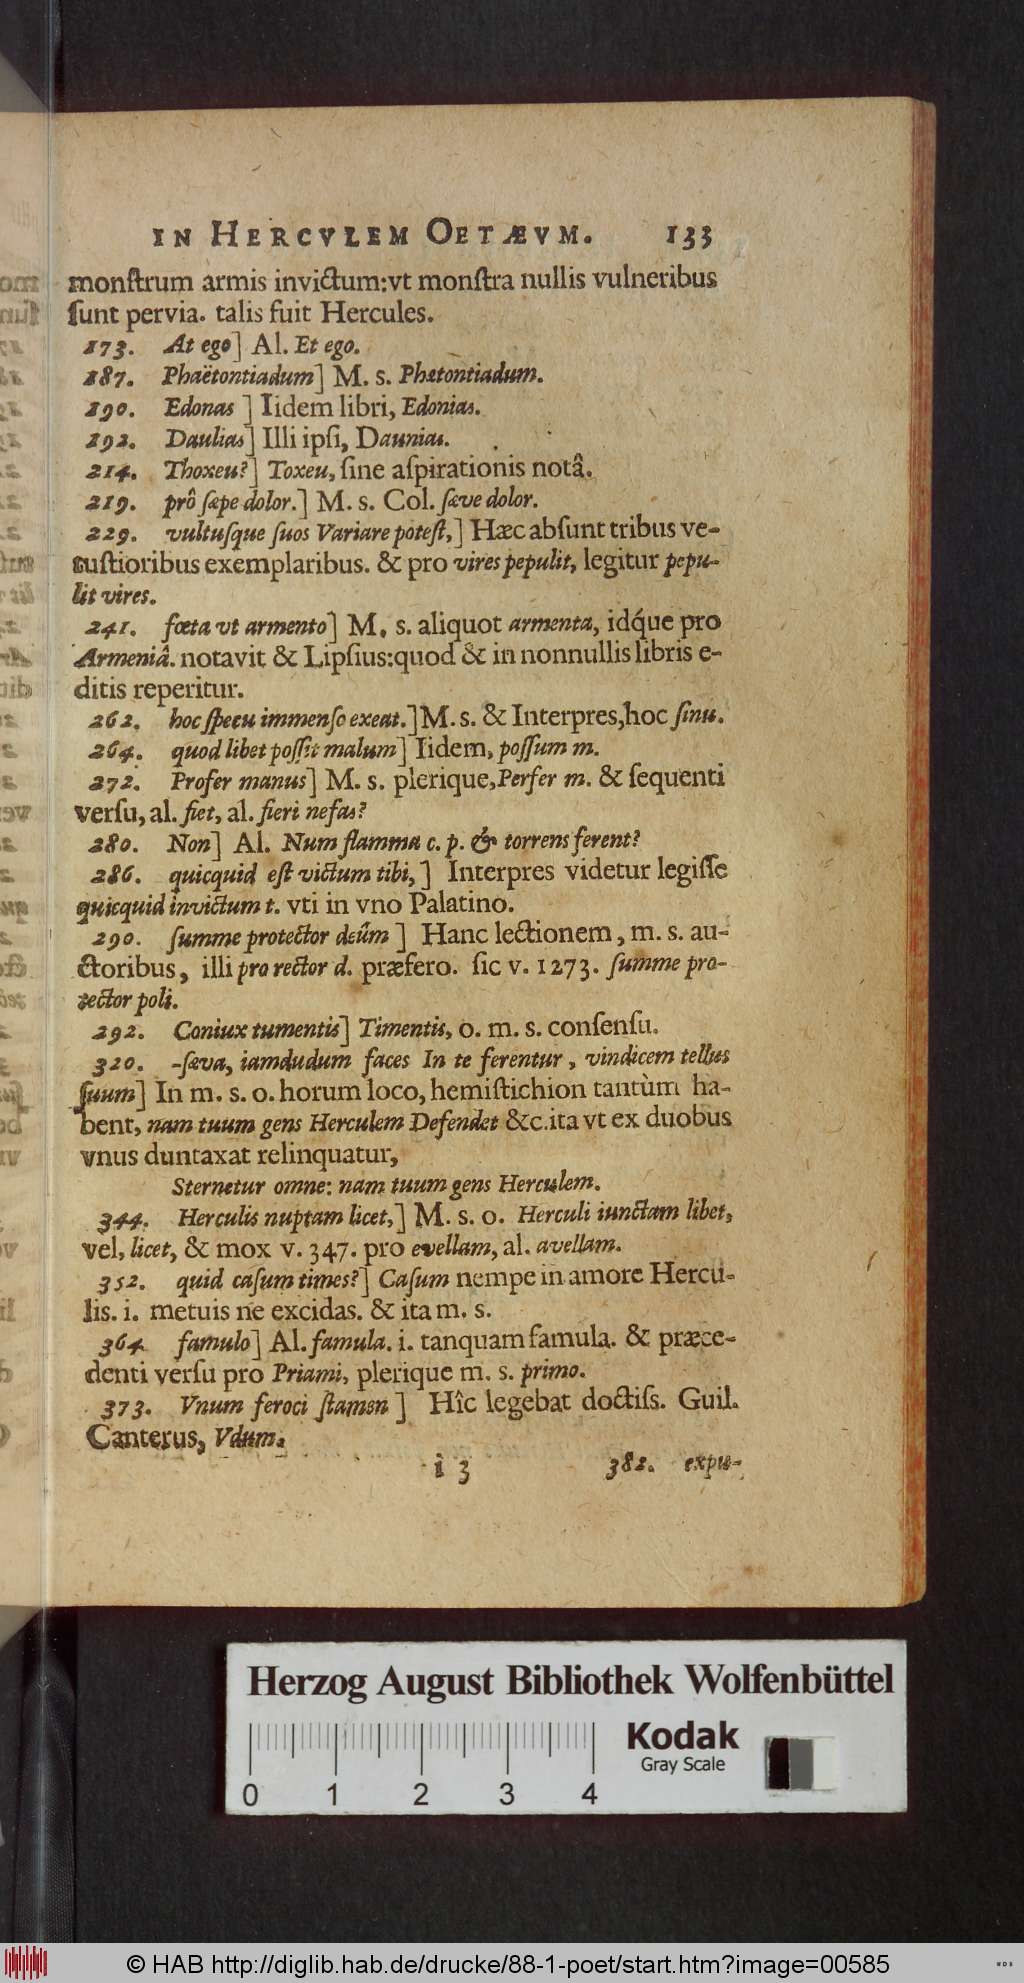 IN HERCVLEM OETÆVM. 133
monſtrum armis invictum:vt monſtra nullis vulneribus
ſunt pervia. talis fuit Hercules.
173. At ego] Al. Et ego.
187. Phaëtontiadum] M. s. Phætontiadum.
190. Edonas ] Iidem libri, Edonias.
192. Daulias] Illi ipſi, Daunias.
214. Thoxeu?] Toxeu, ſine aſpirationis notâ.
219. prô ſæpe dolor.] M. s. Col. ſæve dolor.
229. vultuſque ſuos Variare poteſt,] Hæc abſunt tribus ve-
tuſtioribus exemplaribus. & pro vires pepulit, legitur pepu-
lit vires.
241. fœta vt armento] M. s. aliquot armenta, idq́ue pro
Armeniâ. notavit & Lipſius:quod & in nonnullis libris e-
ditis reperitur.
262. hoc ſpecu immenſo exeat.]M. s. & Interpres,hoc ſinu.
264. quod libet poſſit malum] Iidem, poſſum m.
272. Profer manus] M. s. plerique,Perfer m. & ſequenti
verſu, al. fiet, al. fieri nefas?
280. Non] Al. Num flamma c. p. & torrens ferent?
286. quicquid eſt victum tibi,] Interpres videtur legiſſe
quicquid invictum t. vti in vno Palatino.
290. ſumme protector deûm ] Hanc lectionem, m. s. au-
ctoribus, illi pro rector d. præfero. ſic v. 1273. ſumme pro-
tector poli.
292. Coniux tumentis] Timentis, o. m. s. conſenſu.
320. -ſæva, iamdudum faces In te ferentur, vindicem tellus
ſuum] In m. s. o. horum loco, hemiſtichion tantùm ha-
bent, nam tuum gens Herculem Defendet &c.ita vt ex duobus
vnus duntaxat relinquatur,
Sternetur omne: nam tuum gens Herculem.
344. Herculis nuptam licet,] M. s. o. Herculi iunctam libet,
vel, licet, & mox v. 347. pro evellam, al. avellam.
352. quid caſum times?] Caſum nempe in amore Hercu-
lis. i. metuis ne excidas. & ita m. s.
364. famulo] Al. famula. i. tanquam famula. & præce-
denti verſu pro Priami, plerique m. s. primo.
373. Vnum feroci ſtamen ] Hîc legebat doctiſs. Guil.
Canterus, Vdum.
i 3 382. expu-
Herzog August Bibliothek Wolfenbüttel
Kodak
Gray Scale
0 1 2 3 4
© HAB http://diglib.hab.de/drucke/88-1-poet/start.htm?image=00585